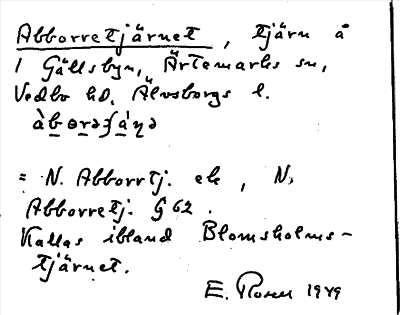 Abborretjärnet, tjärn å
1 Gällsbyn, Ärtemarks sn,
Vedbo hd. Älvsborgs l.
= N. Abborrtj. ek, N.
Abborretj. G 62.
Kallas ibland Blomsholms-
tjärnet.
E. Rosen 1949